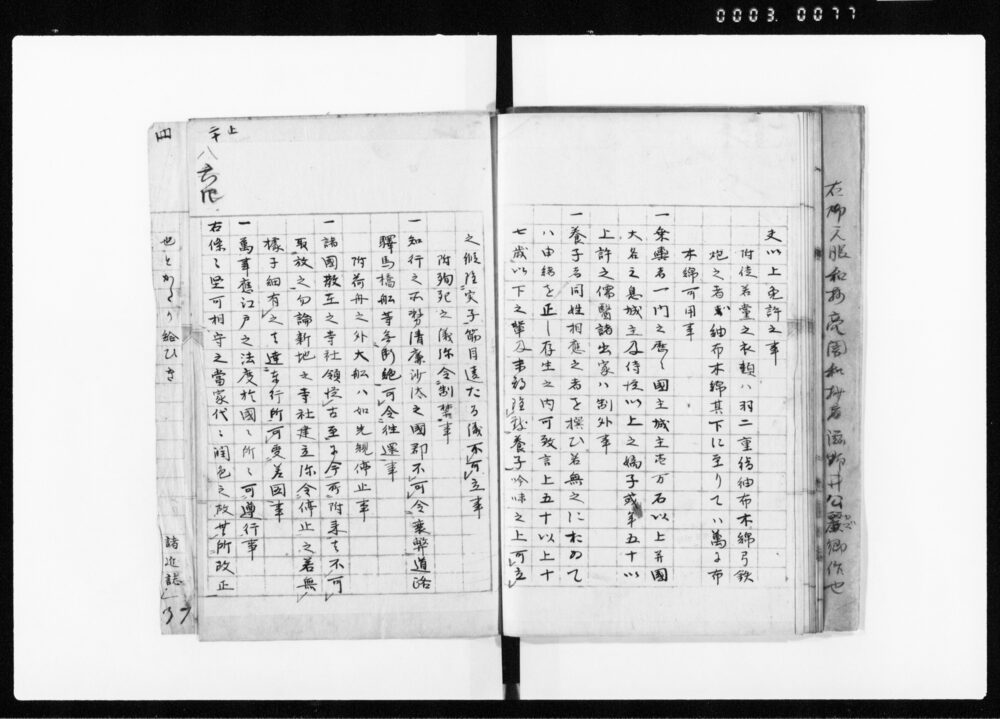 0003 0077
夫以上免許之事
附徒若黨之衣類ハ羽二重絹紬布木綿弓鉄
炮之者ハ紬布木綿其下に至りてハ萬に布
木綿可用事
一乗輿者一門之歴々國主城主壱万石以上并國
大名之息城主及侍従以上之嫡子或年五十以
上許之儒醫諸出家ハ制外事
一養子者同姓相應之者を撰ひ若無之において
ハ由緒を正し存生之内可致言上五十以上十
七歳以下之輩及末期雖致養子吟味之上可立
之縦雖実子筋目違たる儀不可立事
附殉死之儀弥令制禁事
一知行之所務清廉沙汰之國郡不可令衰弊道路
驛馬橋舩等無断絶可令往還事
附荷舟之外大舩ハ如先規停止事
一諸國散在之寺社領従古至于今所附来者不可
取放之勿論新地之寺社建立弥令停止之若無
據子細有之者達奉行所可受差圖事
一萬事應江戸之法度於國々所々可遵行事
右條々堅可相守之當家代々潤色之故無所改正
上